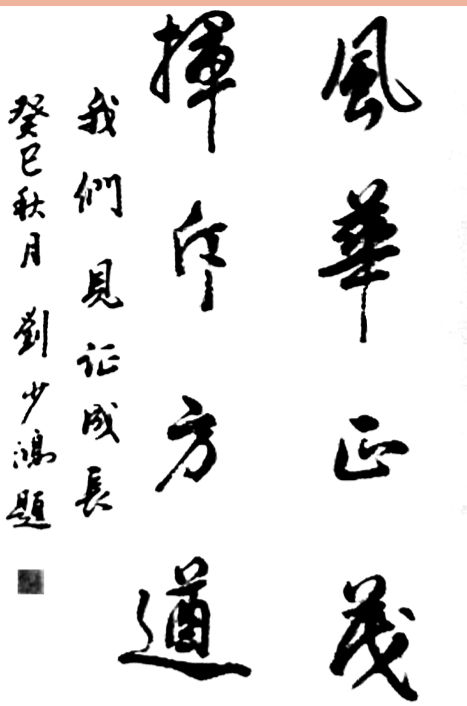 風華正茂
揮斥方遒
我們見证成長
癸巳秋月 劉少鴻題